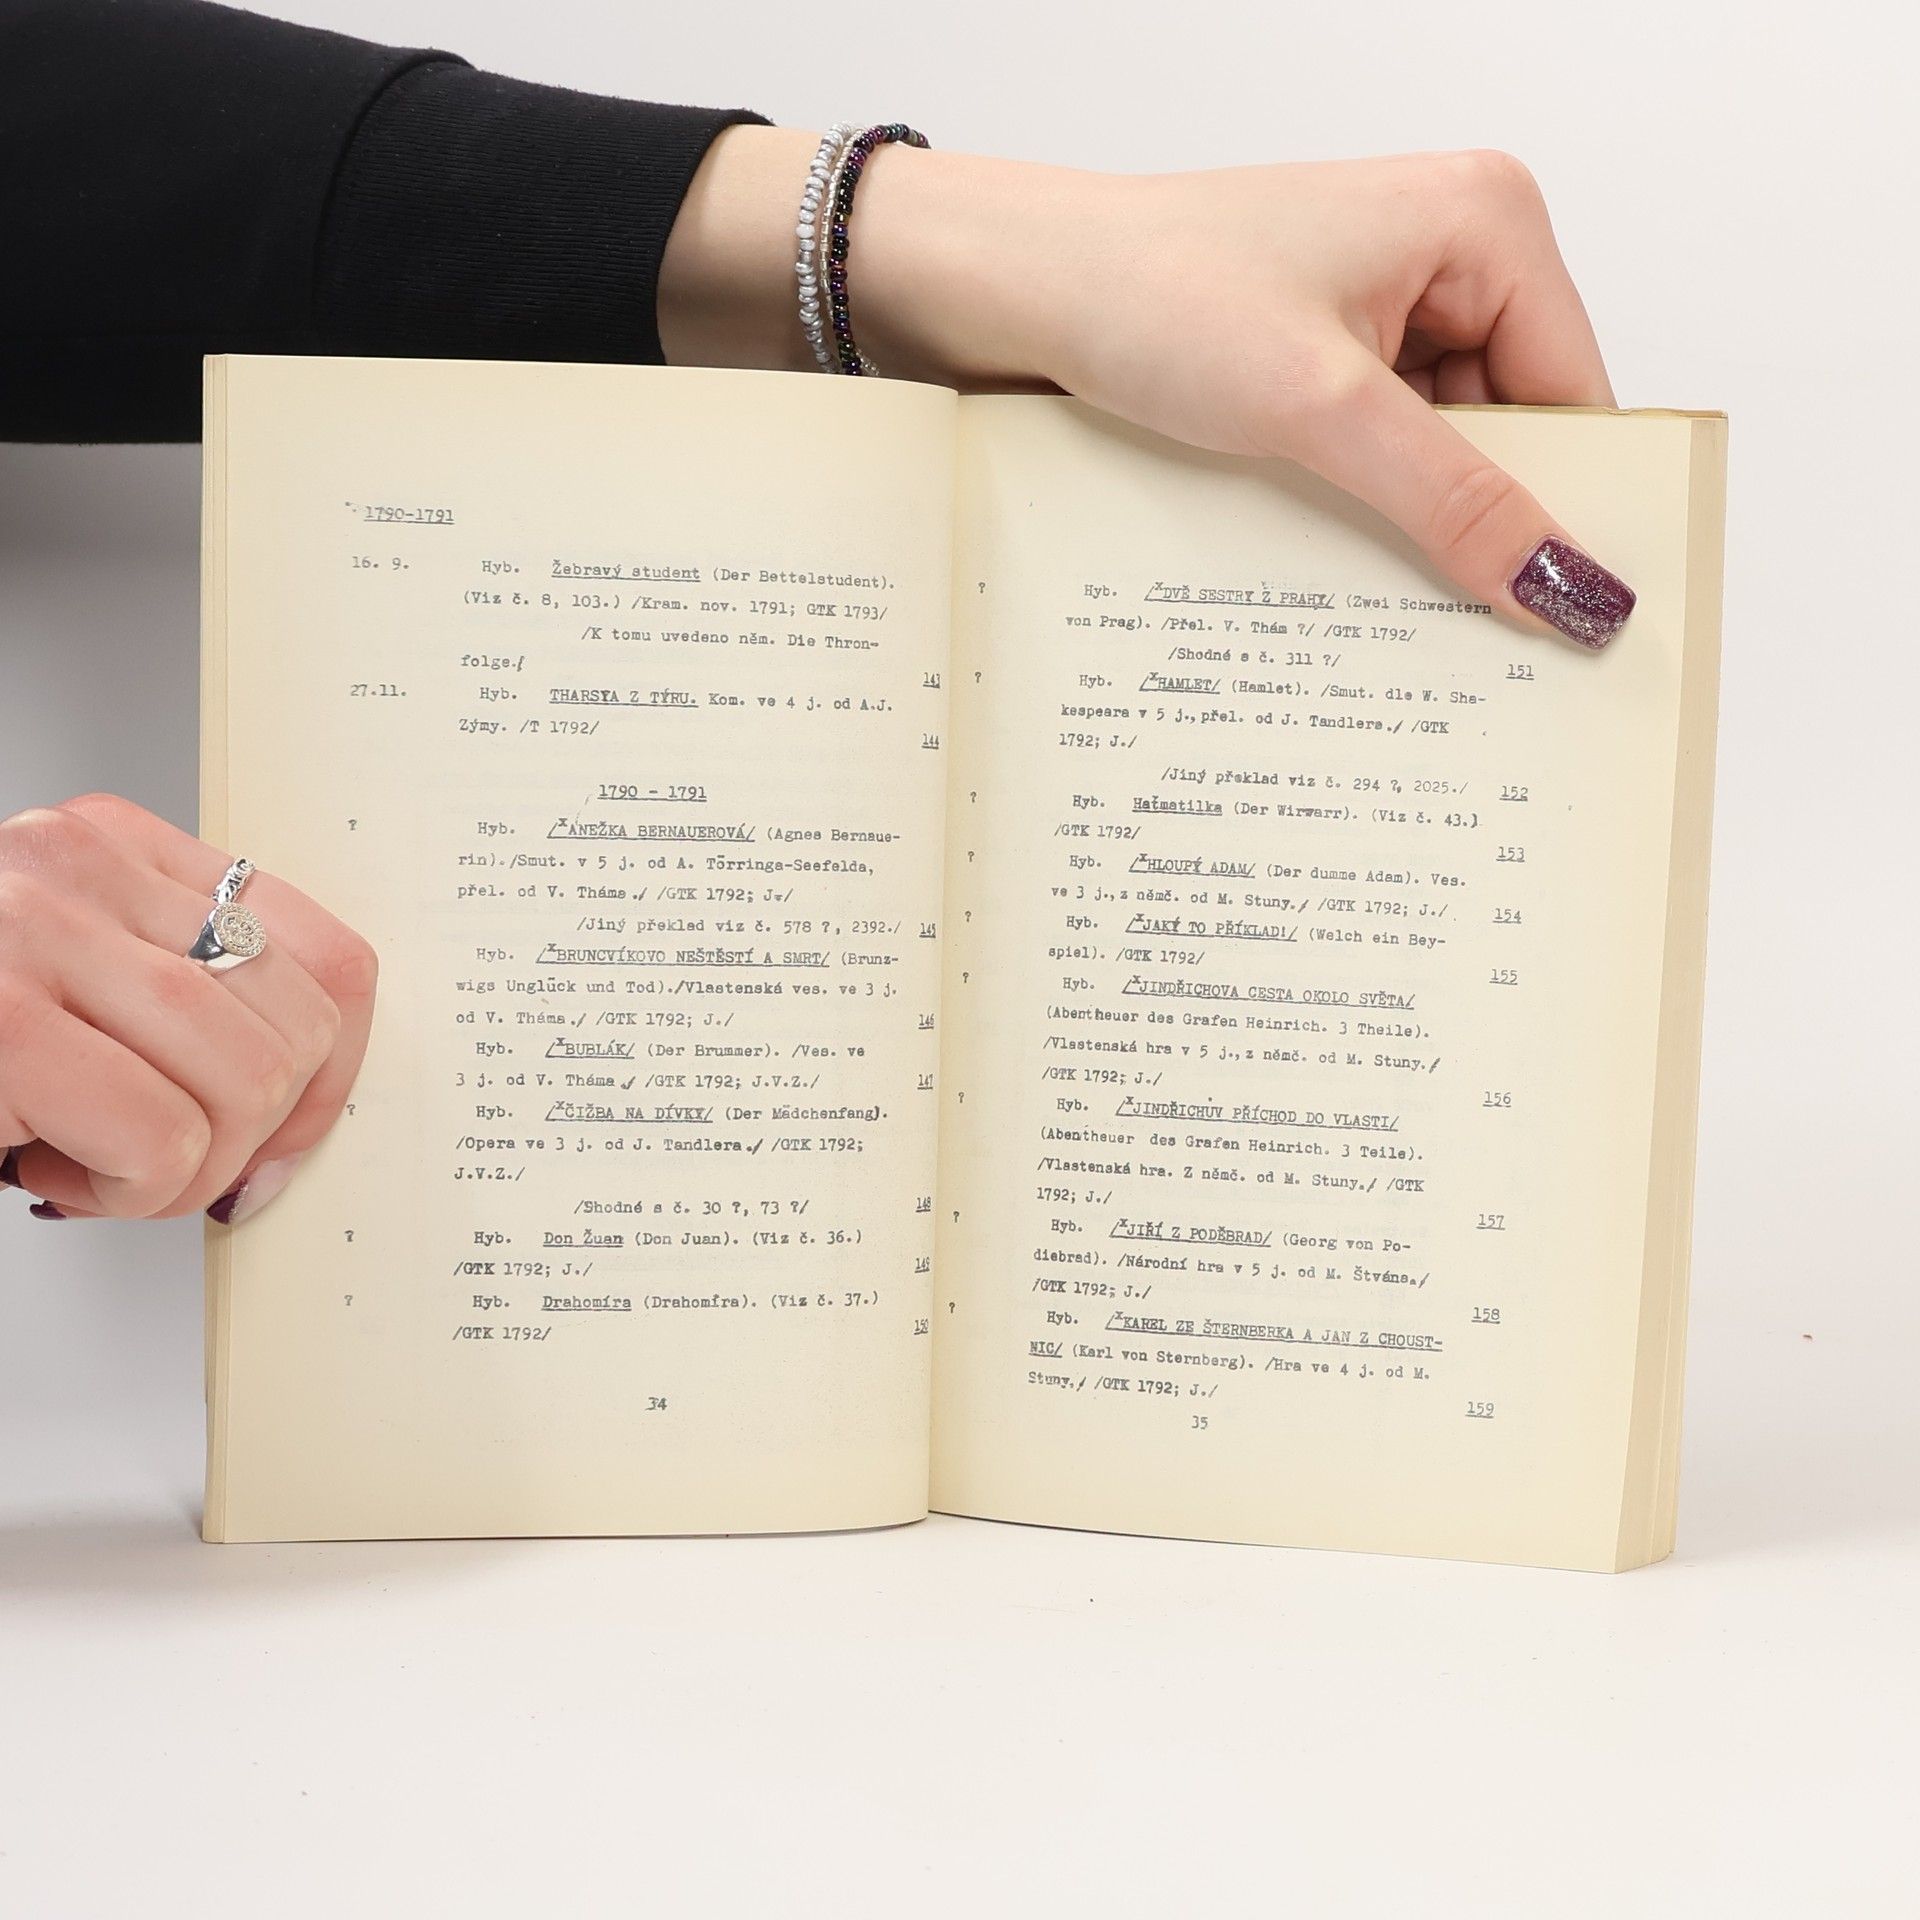 1790-1791
16. 9. Hyb. Žebravý student (Der Bettelstudent).
(Viz č. 8, 103.) /Kram. nov. 1791; GTK 1793/
/K tomu uvedeno něm. Die Thron-
folge./ 143
27.11. Hyb. THARSYA Z TÝRU. Kom. ve 4 j. od A.J.
Zýmy. /T 1792/ 144
1790 - 1791
? Hyb. /ˣANEŽKA BERNAUEROVÁ/ (Agnes Bernaue-
rin)./Smut. v 5 j. od A. Törringa-Seefelda,
přel. od V. Tháma./ /GTK 1792; J./
/Jiný překlad viz č. 578 ?, 2392./ 145
Hyb. /ˣBRUNCVÍKOVO NEŠTĚSTÍ A SMRT/ (Brunz-
wigs Unglück und Tod)./Vlastenská ves. ve 3 j.
od V. Tháma./ /GTK 1792; J./ 146
Hyb. /ˣBUBLÁK/ (Der Brummer). /Ves. ve
3 j. od V. Tháma./ /GTK 1792; J.V.Z./ 147
? Hyb. /ˣČIŽBA NA DÍVKY/ (Der Mädchenfang).
/Opera ve 3 j. od J. Tandlera./ /GTK 1792;
J.V.Z./
/Shodné s č. 30 ?, 73 ?/ 148
? Hyb. Don Žuan (Don Juan). (Viz č. 36.)
/GTK 1792; J./ 149
? Hyb. Drahomíra (Drahomíra). (Viz č. 37.)
/GTK 1792/ 150
34
? Hyb. /ˣDVĚ SESTRY Z PRAHY/ (Zwei Schwestern
von Prag). /Přel. V. Thám ?/ /GTK 1792/
/Shodné s č. 311 ?/ 151
? Hyb. /ˣHAMLET/ (Hamlet). /Smut. dle W. Sha-
kespeara v 5 j., přel. od J. Tandlera./ /GTK
1792; J./
/Jiný překlad viz č. 294 ?, 2025./ 152
? Hyb. Hařmatilka (Der Wirwarr). (Viz č. 43.)
/GTK 1792/ 153
? Hyb. /ˣHLOUPÝ ADAM/ (Der dumme Adam). Ves.
ve 3 j., z němč. od M. Stuny./ /GTK 1792; J./ 154
? Hyb. /ˣJAKÝ TO PŘÍKLAD!/ (Welch ein Bey-
spiel). /GTK 1792/ 155
? Hyb. /ˣJINDŘICHOVA CESTA OKOLO SVĚTA/
(Abentheuer des Grafen Heinrich. 3 Theile).
/Vlastenská hra v 5 j., z němč. od M. Stuny./
/GTK 1792; J./ 156
? Hyb. /ˣJINDŘICHŮV PŘÍCHOD DO VLASTI/
(Abentheuer des Grafen Heinrich. 3 Teile).
/Vlastenská hra. Z němč. od M. Stuny./ /GTK
1792; J./ 157
? Hyb. /ˣJIŘÍ Z PODĚBRAD/ (Georg von Po-
diebrad). /Národní hra v 5 j. od M. Štvána./
/GTK 1792; J./ 158
? Hyb. /ˣKAREL ZE ŠTERNBERKA A JAN Z CHOUST-
NIC/ (Karl von Sternberg). /Hra ve 4 j. od M.
Stuny./ /GTK 1792; J./ 159
35